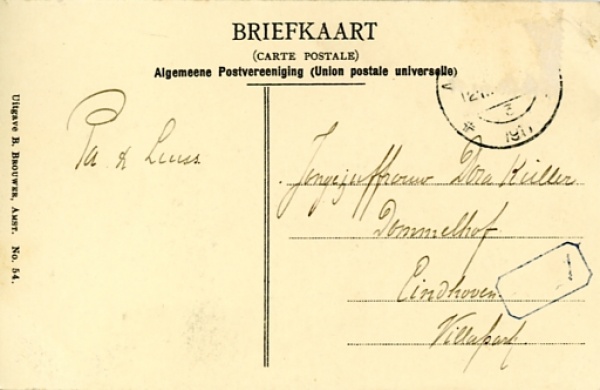 BRIEFKAART
(CARTE POSTALE)
Algemeene Postvereeniging (Union postale universelle)
Uitgave B. BROUWER, AMST. No. 54.
Pa & Luus
Jongejuffrouw Dora Küller
Dommelhof
Eindhoven
Villapark.